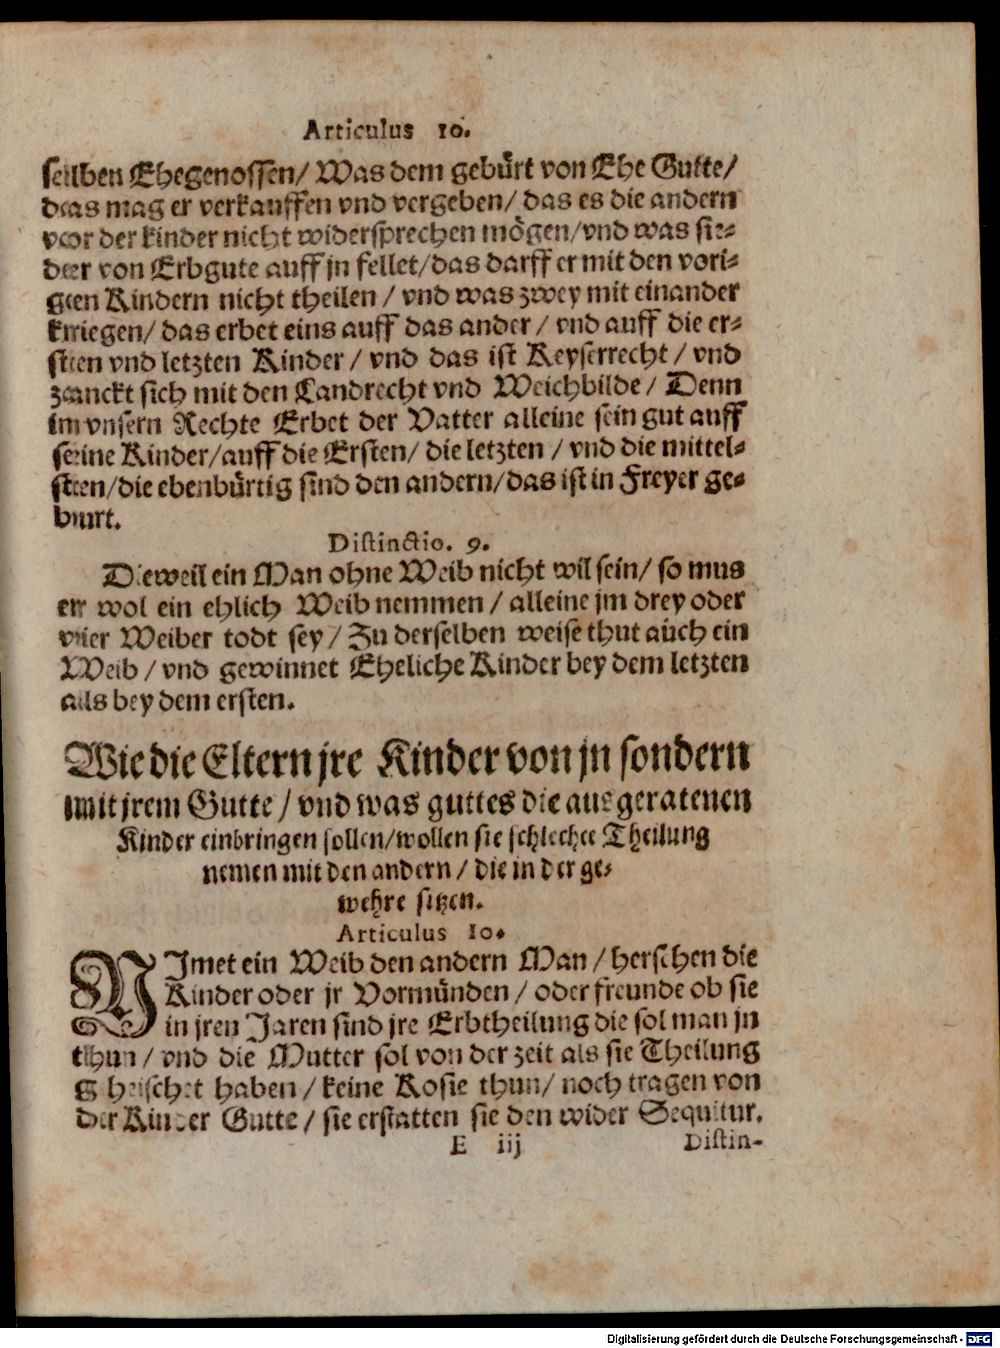 Articulus 10.
selben Ehegenossen/ Was dem gebürt von Ehe Gutte/
das mag er verkauffen vnd vergeben/ das es die andern
vor der kinder nicht widersprechen mögen/vnd was sie-
der von Erbgute auff jn fellet/das darff er mit den vori-
gen Kindern nicht theilen / vnd was zwey mit einander
kriegen/ das erbet eins auff das ander / vnd auff die er-
sten vnd letzten Kinder / vnd das ist Keyserrecht / vnd
zanckt sich mit den Landrecht vnd Weichbilde / Denn
im vnsern Rechte Erbet der Vatter alleine sein gut auff
seine Kinder/auff die Ersten/ die letzten / vnd die mittel-
sten/die ebenbürtig sind den andern/das ist in Freyer ge-
burt.
Distinctio. 9.
Dieweil ein Man ohne Weib nicht wil sein/ so mus
er wol ein ehlich Weib nemmen / alleine jm drey oder
vier Weiber todt sey / Zu derselben weise thut auch ein
Weib / vnd gewinnet Eheliche Kinder bey dem letzten
als bey dem ersten.
Wie die Eltern jre Kinder von jn sondern
mit jrem Gutte / vnd was guttes die ausgeratenen
Kinder einbringen sollen/wollen sie schlechte Theilung
nemen mit den andern / die in der ge-
wehre sitzen.
Articulus 10.
NImet ein Weib den andern Man / herschen die
Kinder oder jr Vormünden / oder freunde ob sie
in jren Jaren sind jre Erbtheilung die sol man jn
thun / vnd die Mutter sol von der zeit als sie Theilung
g heischet haben / keine Kosie thun/ noch tragen von
der Kinder Gutte / sie erstatten sie den wider Sequitur.
E iij Distin-
Digitalisierung gefördert durch die Deutsche Forschungsgemeinschaft - DFG